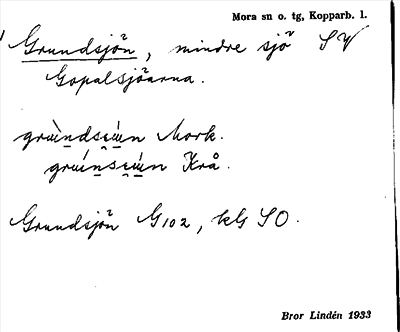 Mora sn o. tg, Kopparb. l.
Grundsjön, mindre sjö SV
Gopalsjöarna.
Mork.
Krå.
Grundsjön G102, kG SO.
Bror Lindén 1933